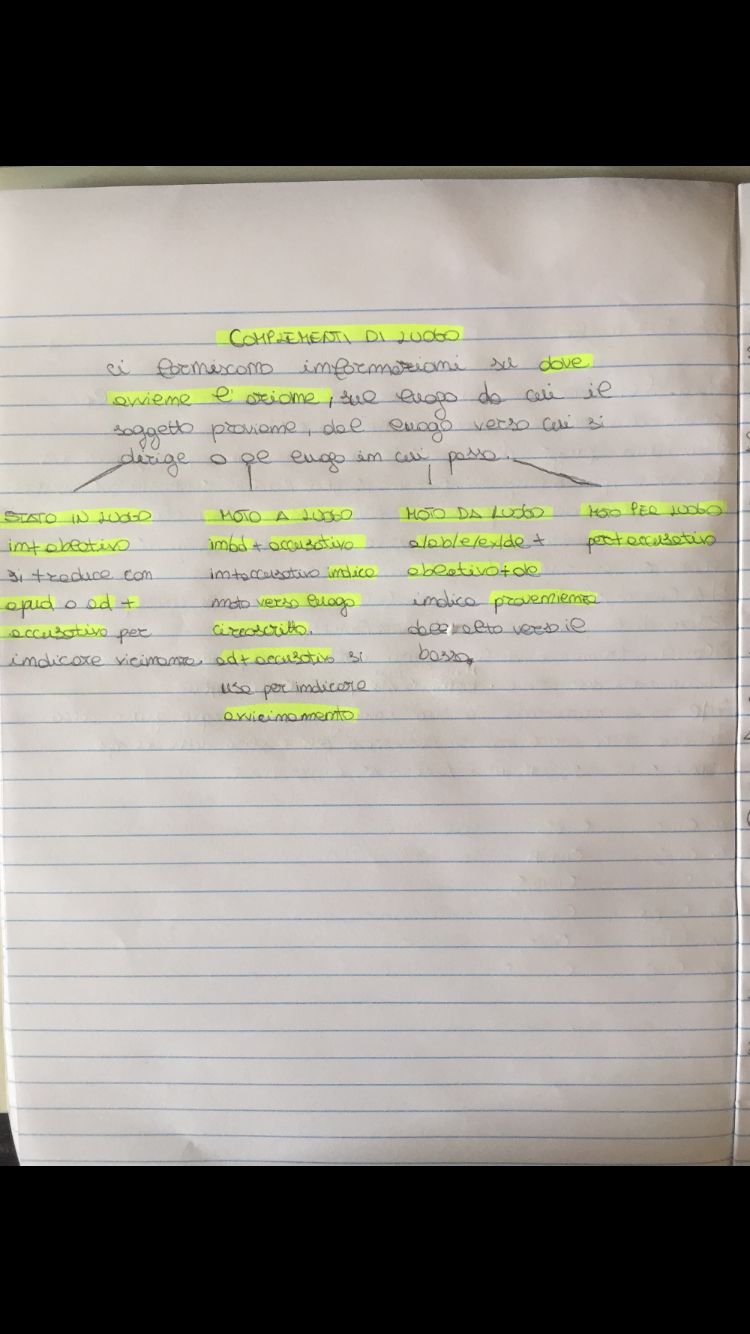 COMPLEMENTI DI LUOGO
ci forniscono informazioni su dove
avviene l'azione, sul luogo da cui il
soggetto proviene, dal luogo verso cui si
dirige o al luogo in cui passa.
STATO IN LUOGO
in+ablativo
si traduce con
apud o ad +
accusativo per
indicare vicinanza.
MOTO A LUOGO
in/ad + accusativo
in+accusativo indica
moto verso luogo
circoscritto.
ad+accusativo si
usa per indicare
avvicinamento
MOTO DA LUOGO
a/ab/e/ex/de +
ablativo+de
indica provenienza
dall'alto verso il
basso.
MOTO PER LUOGO
per+accusativo